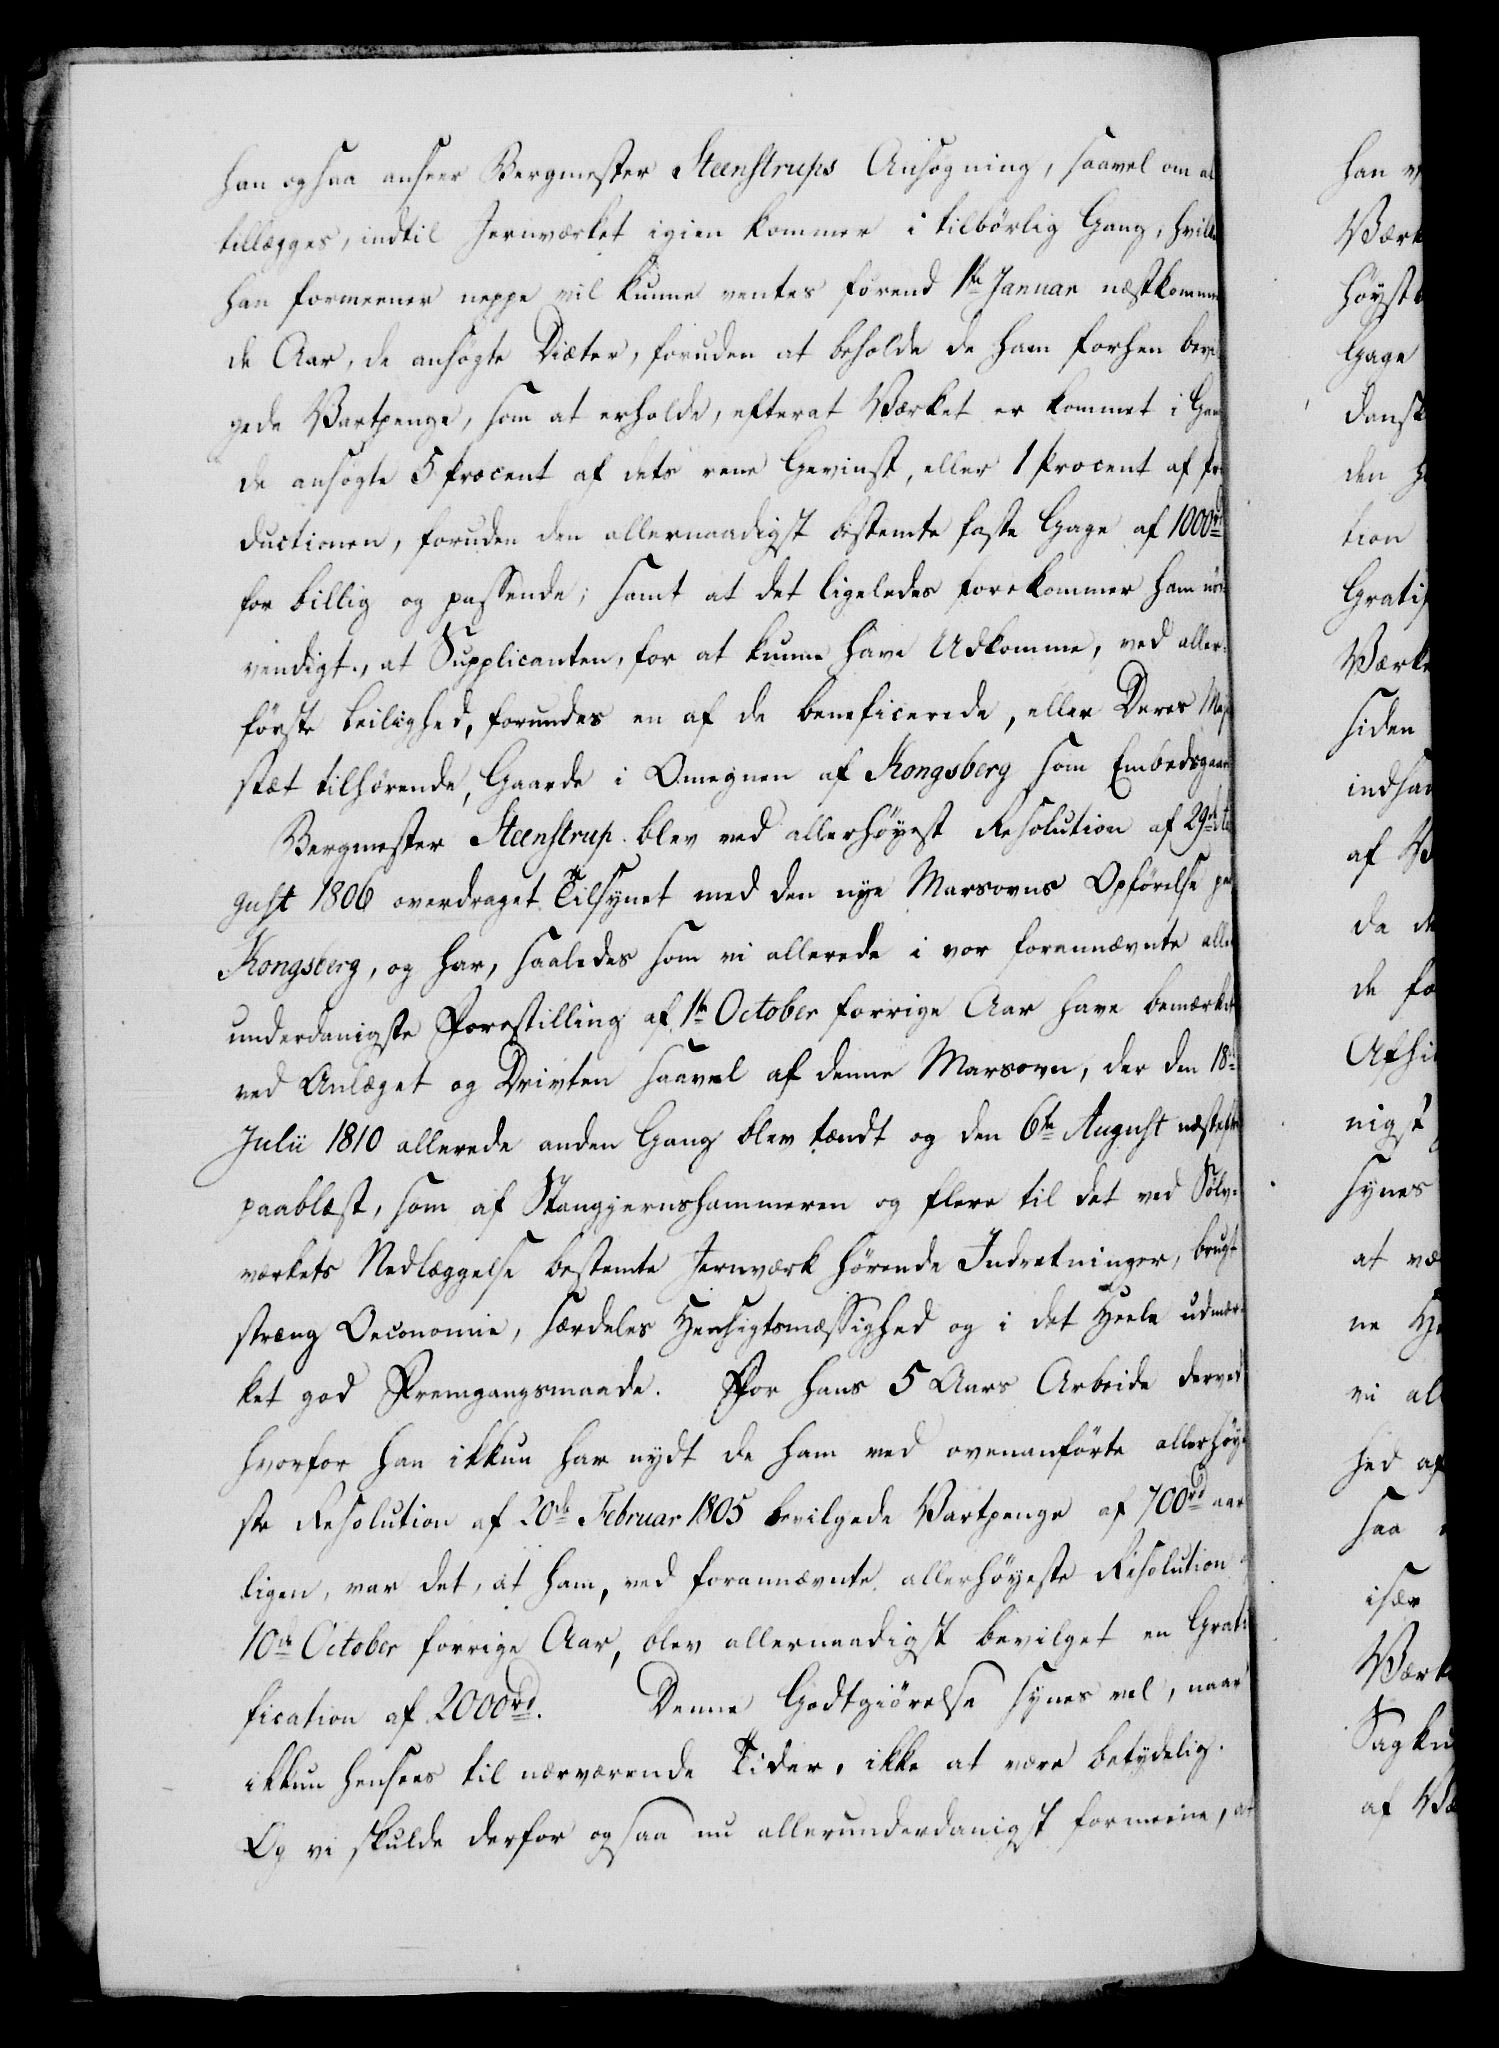 han ogsaa anseer Bergmester Steenstrups Ansøgning, saavel om at
tillægges, indtil Jernværket igien kommer i tilbörlig Gang, hvilket
han formeener neppe vil kunne ventes förend 1ste Januar næstkommen
de Aar, de ansögte Diæter, foruden at beholde de ham forhen bevil
gede Vartpenge, som at erholde, efterat Værket er kommet i Gang
de ansøgte 5 Procent af dets rene Gevinst, eller 1 Procent af Pro
ductionen, foruden den allernaadigst bestemte faste Gage af 1000rd
for billig og passende; samt at det ligeledes forekommer ham nöd
vendigt, at Supplicanten, for at kunne have Udkomme, ved aller-
förste Leilighed, forundes en af de beneficerede, eller Deres Maje
stæt tilhørende, Gaarde i Omegnen af Kongsberg som Embedsgaard
Bergmester Steenstrup blev ved allerhöyest Resolution af 29de Au
gust 1806 overdraget Tilsynet med den nye Marsovns Opförelse paa
Kongsberg, og har, saaledes som vi allerede i vor forannævnte aller
underdanigste Forestilling af 1ste October forrige Aar have bemærket
ved Anlæget og Drivten saavel af denne Marsovn, der den 18de
Julii 1810 allerede anden Gang blev tændt og den 6te August næstefter
paablæst, som af Stangjernshammeren og flere til det ved Sölv-
værkets Nedlæggelse bestemte Jernværk hörende Indretninger, brugt
streng Oeconomie, særdeles Hensigtsmæssighed og i det Heele udmær-
ket god Fremgangsmaade. For hans 5 Aars Arbeide derved
hvorfor han ikkun har nydt de ham ved ovenanførte allerhöye
ste Resolution af 20de Februar 1805 bevilgede Vartpenge af 700rd aar
ligen, var det, at ham, ved forannævnte allerhöyeste Resolution
10de October forrige Aar, blev allernaadigst bevilget en Grati
fication af 2000rd. Denne Godtgiörelse synes vel, naar
ikkun hensees til nærværende Tider, ikke at være betydelig.
Og vi skulde derfor ogsaa nu allerunderdanigst formeene, at